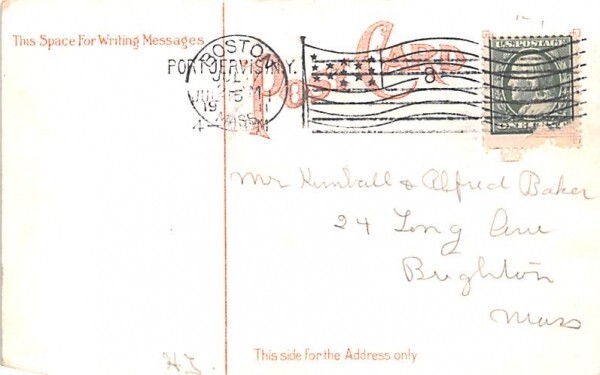 This Space For Writing Messages
POST CARD
BOSTON
PORT JERVIS N.Y.
JUL 5
19
MASS
8
U.S. POSTAGE
Mr Kimball & Alfred Baker
24 Long Ave
Brighton
Mass
This side for the Address only